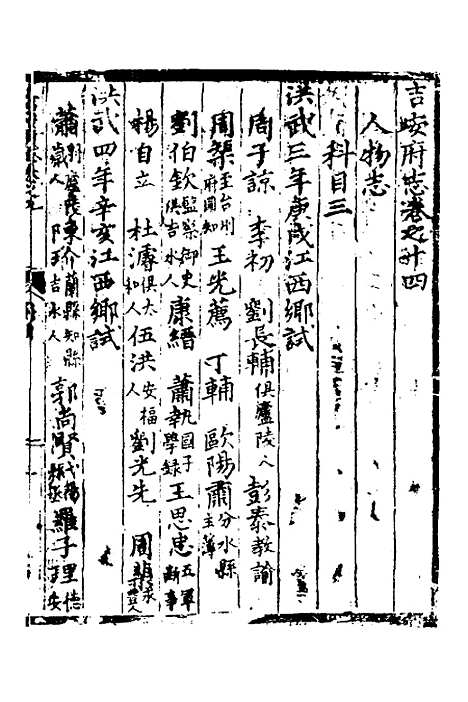 吉安府志卷之廿四
人物志
科目三
洪武三年庚戌江西鄉試
周子諒 李礽 劉長輔俱廬陵人 彭泰教諭
周槩至台州府同知 王光薦 丁輔 歐陽肅分水縣主簿
劉伯欽監察御史俱吉水人 康縉 蕭執國子學錄 王思忠五軍斷事
楊自立 杜濬俱太和人 伍洪安福人 劉光先 周
洪武四年辛亥江西鄉試
蕭 廬陵 介蘭縣知縣 吉水人 郭尚賢 縣丞 羅子理德安